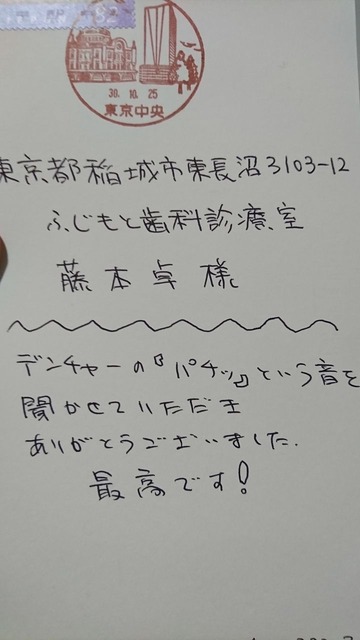 30.10.25
東京中央
東京都稲城市東長沼3103-12
ふじもと歯科診療室
藤本卓様
デンチャーの『パチッ』という音を
聞かせていただき
ありがとうございました.
最高です!